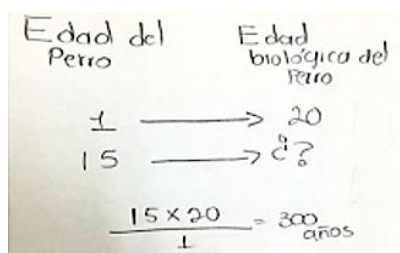 Edad del Perro
Edad biológica del Perro
1 → 20
15 → ¿?
15 x 20 / 1 = 300 años